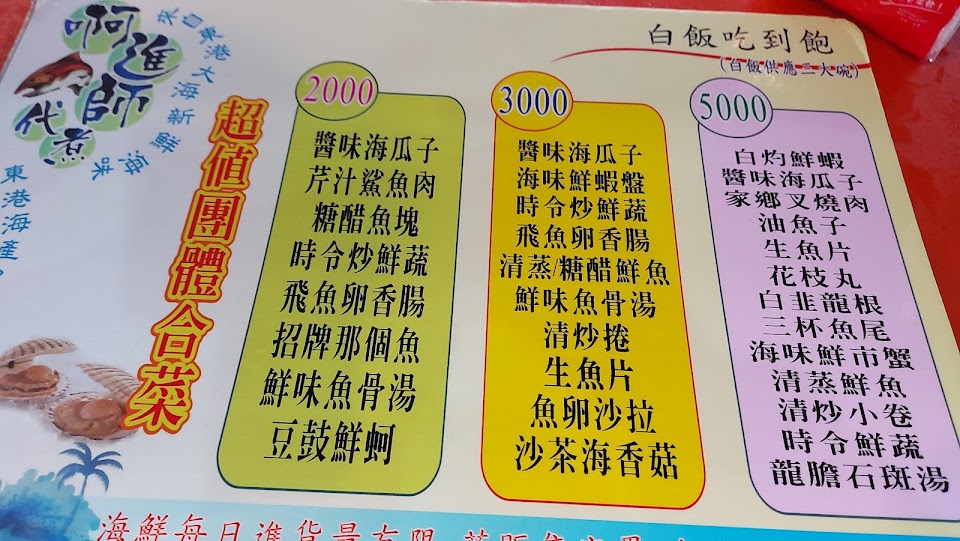 啊進師
代煮
來自東港大海新鮮海味
東港海產
超值團體合菜
白飯吃到飽
(白飯供應三大碗)
2000
醬味海瓜子
芹汁鯊魚肉
糖醋魚塊
時令炒鮮蔬
飛魚卵香腸
招牌那個魚
鮮味魚骨湯
豆鼓鮮蚵
3000
醬味海瓜子
海味鮮蝦盤
時令炒鮮蔬
飛魚卵香腸
清蒸/糖醋鮮魚
鮮味魚骨湯
清炒捲
生魚片
魚卵沙拉
沙茶海香菇
5000
白灼鮮蝦
醬味海瓜子
家鄉叉燒肉
油魚子
生魚片
花枝丸
白韭龍根
三杯魚尾
海味鮮市蟹
清蒸鮮魚
清炒小卷
時令鮮蔬
龍膽石斑湯
海鮮每日進貨量有限